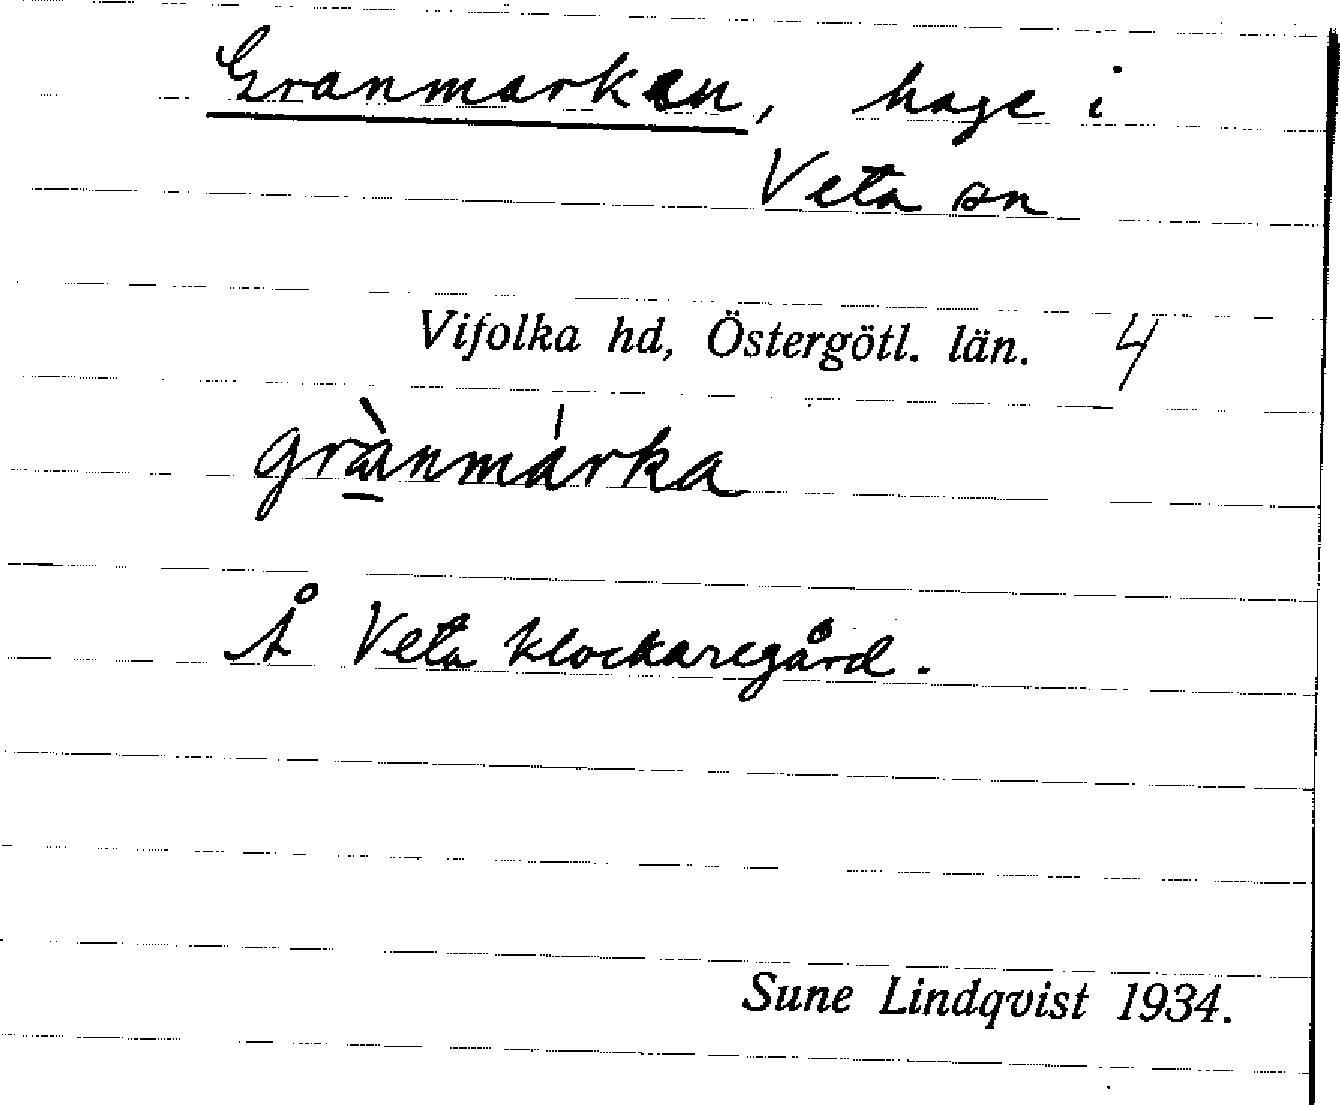 Granmarken, hage i
Veta sn
Vifolka hd, Östergötl. län. 4
grànmárka
Å Veta klockaregård.
Sune Lindqvist 1934.